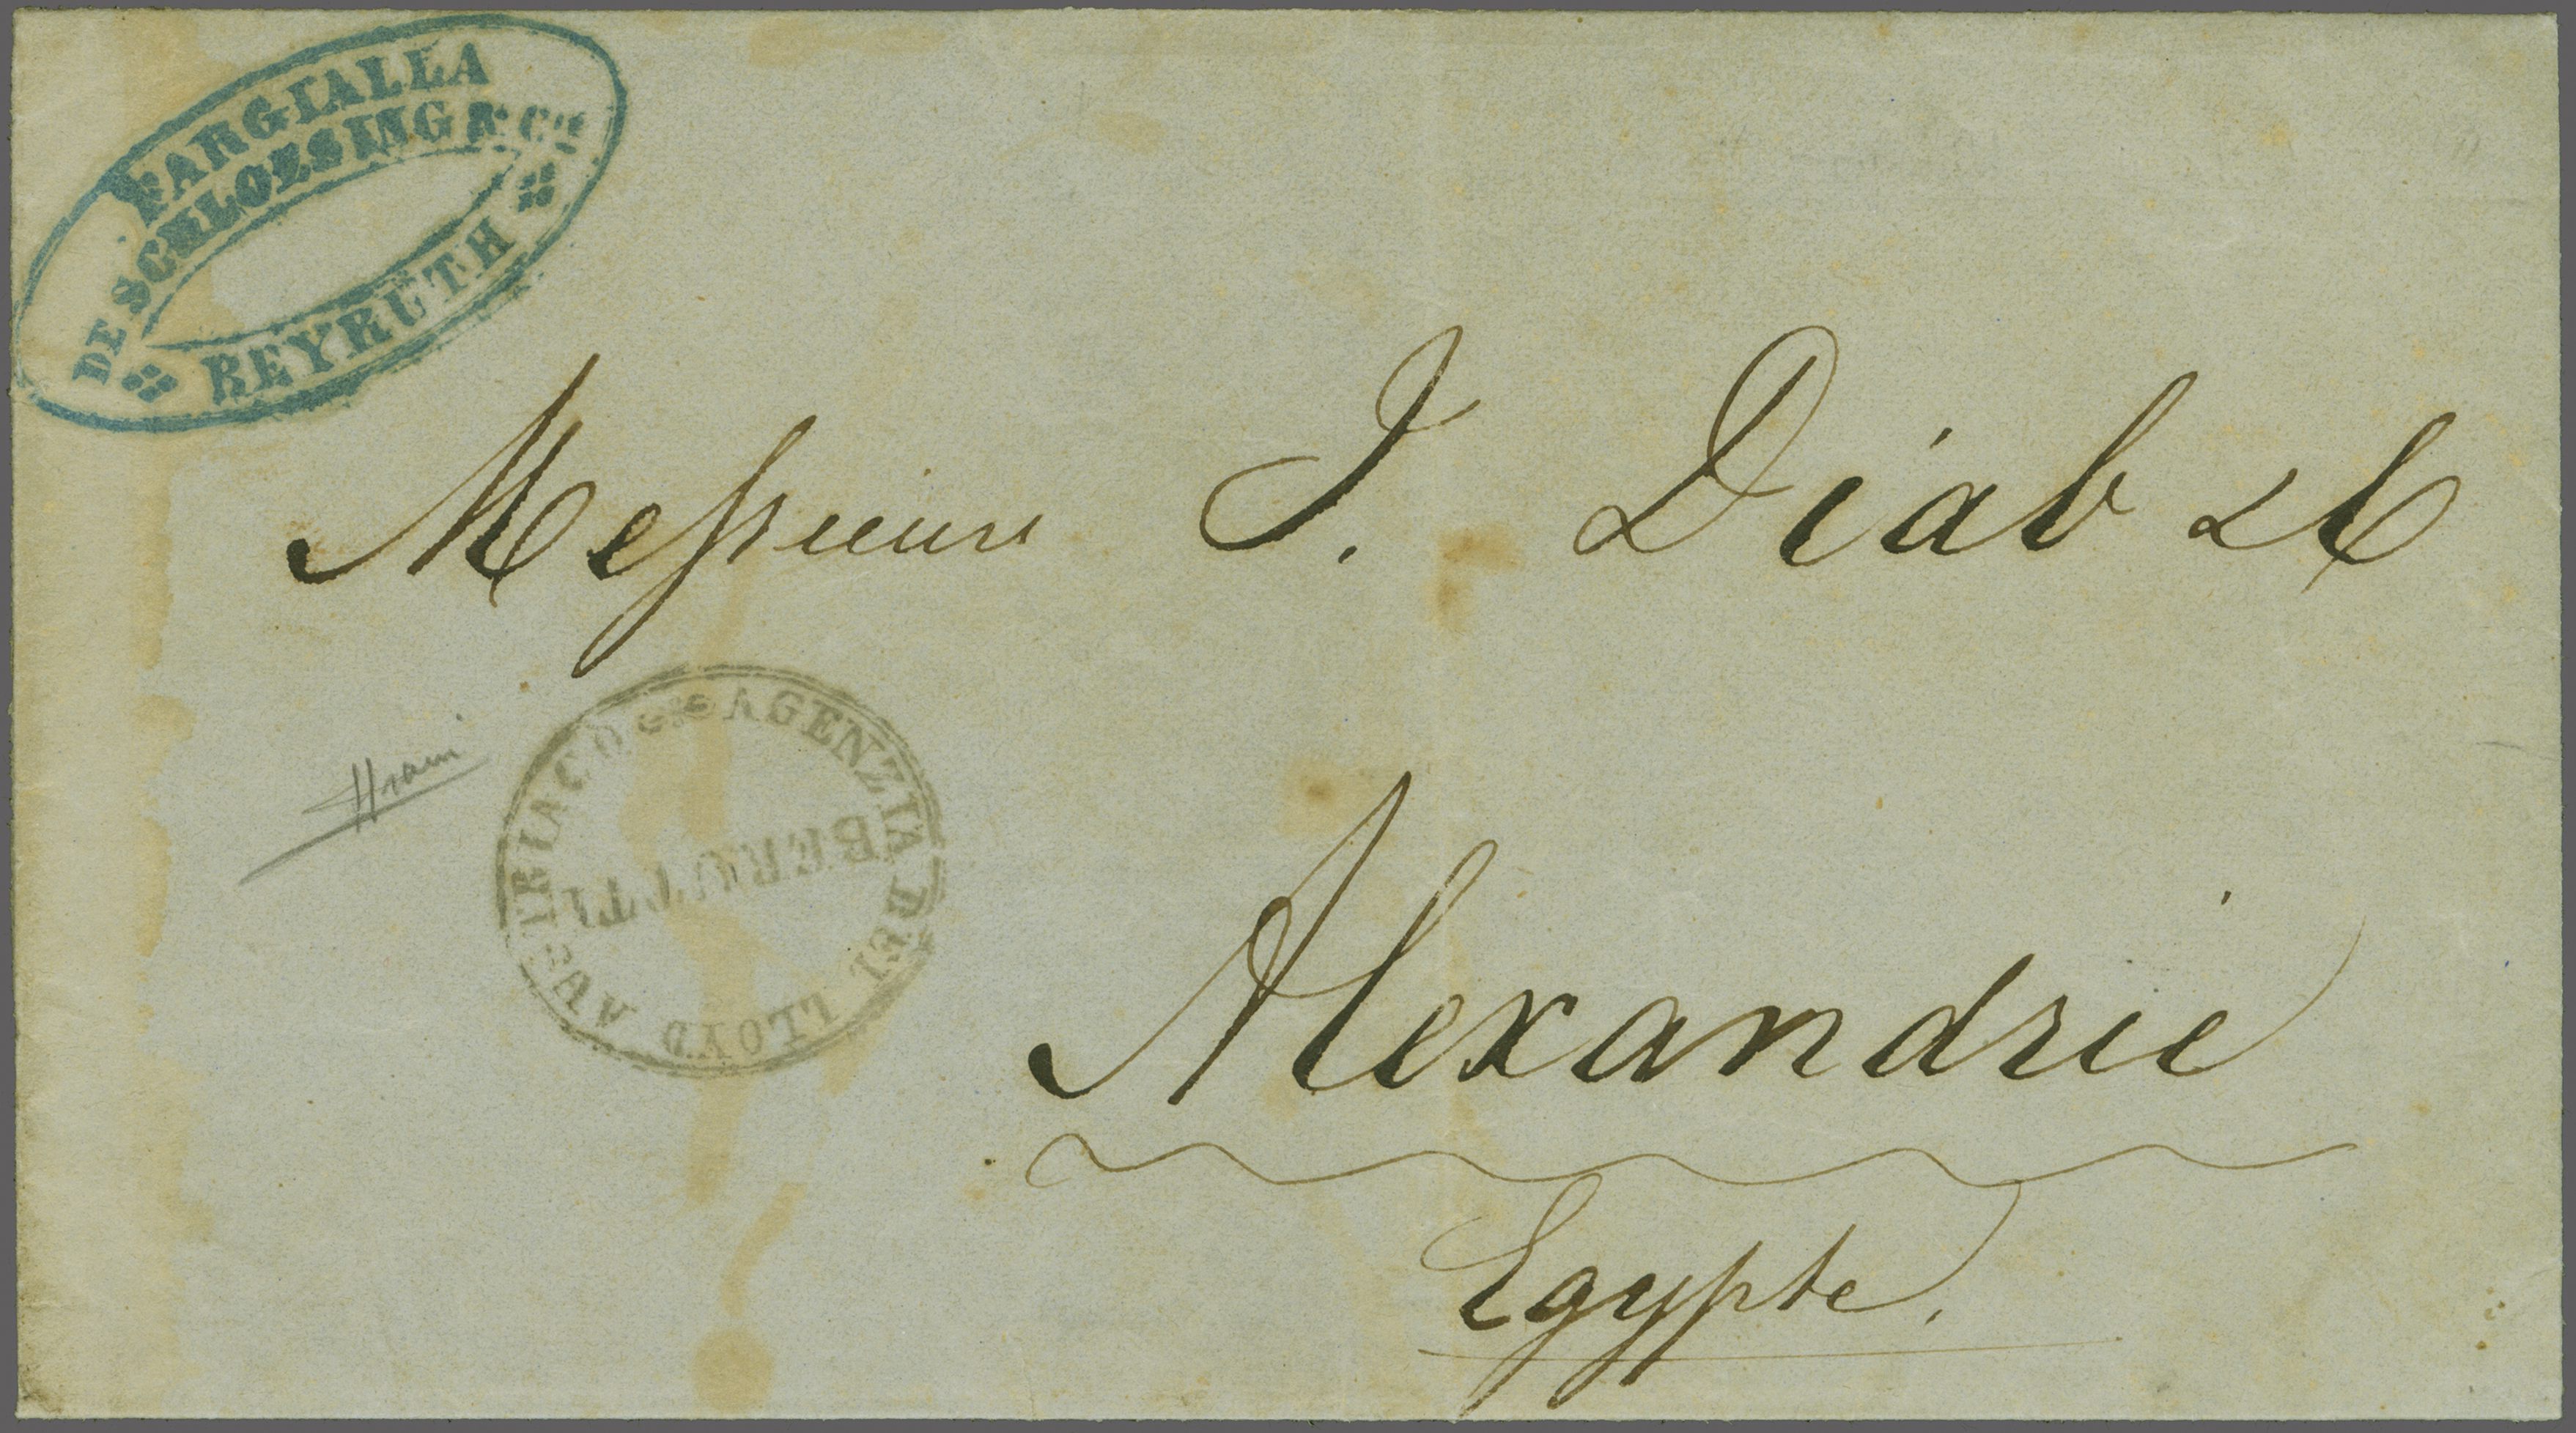 FARGIALLA
DE SCHLOESSING & Cie
BEYRUTH
Messieurs J. Diab & C
AGENZIA DEL LLOYD AUSTRIACO
BERUTTI
Alexandrie
Egypte.